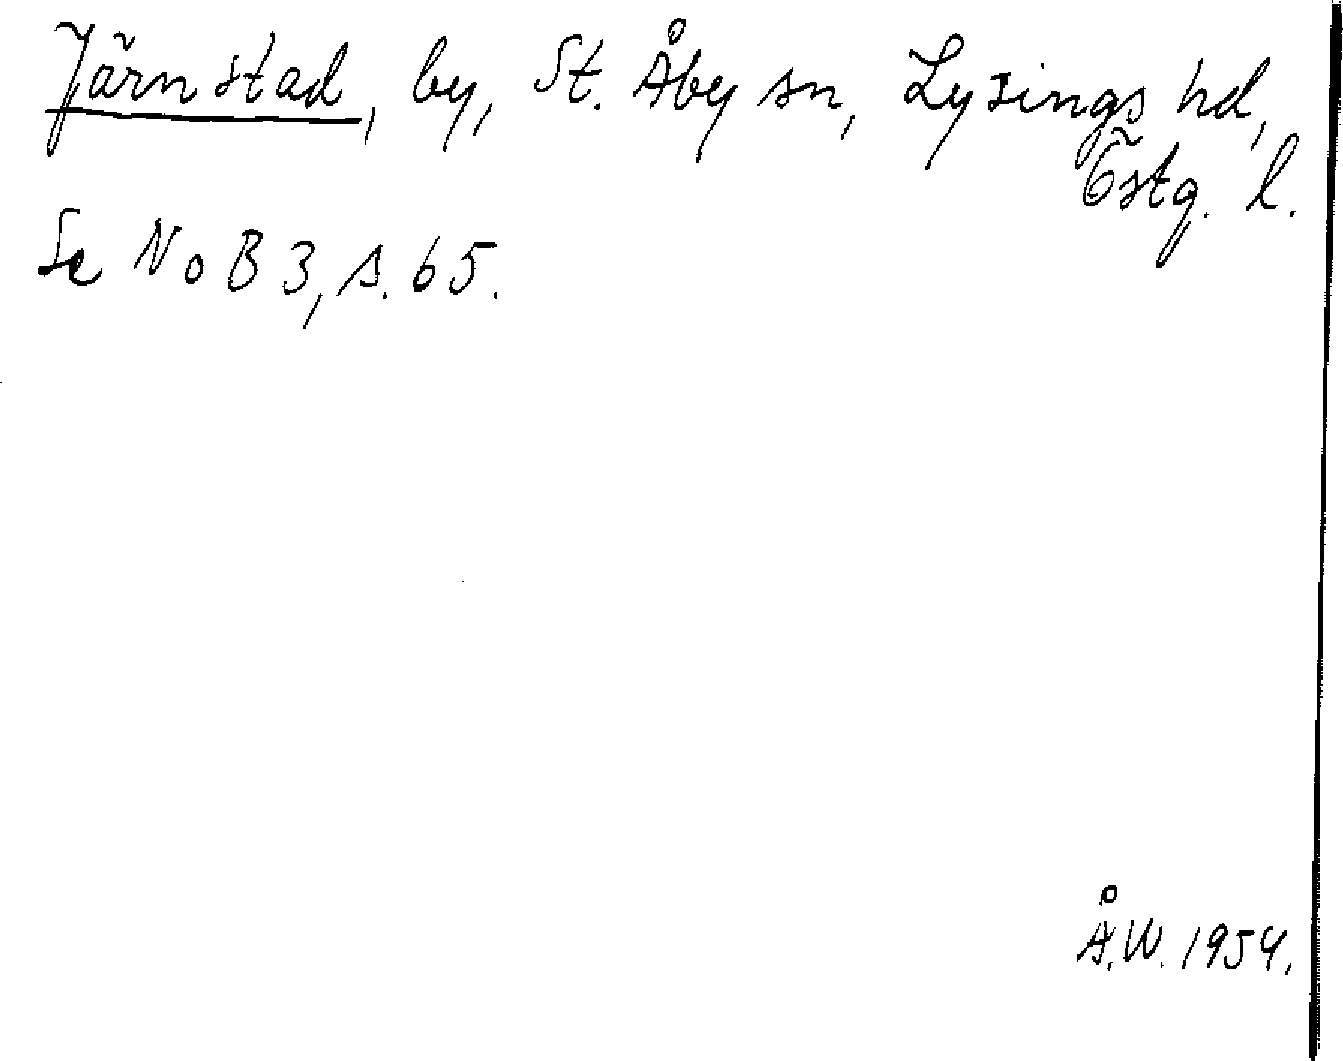 Järnstad, by, St. Åby sn, Lysings hd,
Östg. l.
Se NoB 3, s. 65.
Å.W. 1954.